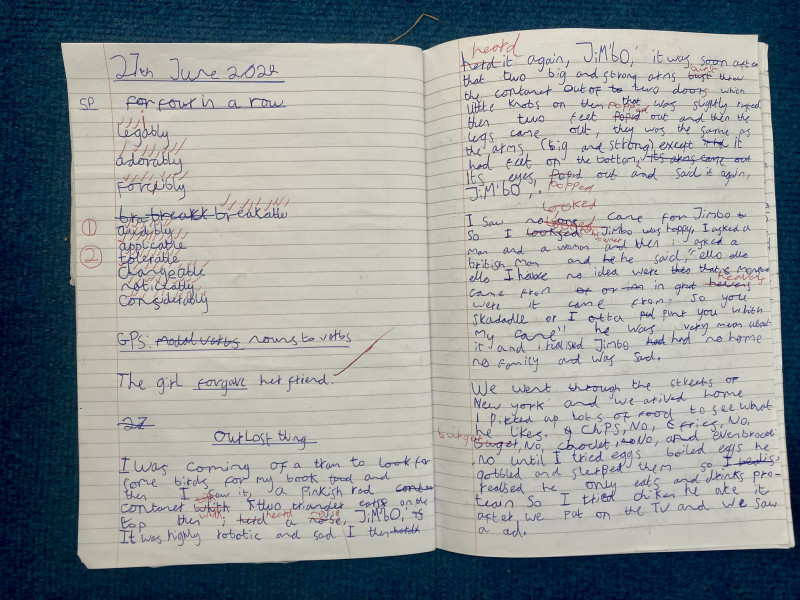 27th June 2024
SP for four in a row
legably
adorably
forceably
bra breakk breakable
audably
① applicable
② tolerable
changeable
noticably
considerably
GPS: modal verbs nouns to verbs
The girl forgave her friend.
27
Our Lost thing
I was coming of a tram to look for
some birds for my book and
then I saw it, a pinkish red
contaner with two triangler ears on the
top then I heard a noise, JiM'bO,'
It was highly robotic and sad I then
heard
herd it again, JiM'bO,' it was soon after
that two big and strong arms burst threw
the contaner out of to two doors which
little knobs on them that was slightly
popped
then two feet Poped out and then the
legs came out, they was the same as
the arms (big and strong) except it
had feet on the bottom, its arms came out
Its eyes, Poped out and said it again,
JiM'bO,'. popped
looked
I saw no came for Jimbo
So I Jimbo was happy, I asked a
owner
man and a woman and then i asked a
british man and he he said, "ello ello
ello I have no idea were that
came from or in grat heavens
heavens
were it came from. So you
Skadadle or I otta punt you whith
my cane" he was very mean about
it and I realised Jimbo had had no home
no family and was sad.
We went through the streets of
New york and we arived home
I picked up lots of food to see what
he likes. Chips, No, fries, No,
burger
buger, No, choclet, No, and even brocoli
no until I tried eggs boiled eggs he
gobbled and slerped them so I
realised he only eats and drinks pro-
tean So I tried chiken he ate it
after, we put on the TV and we saw
a ad.